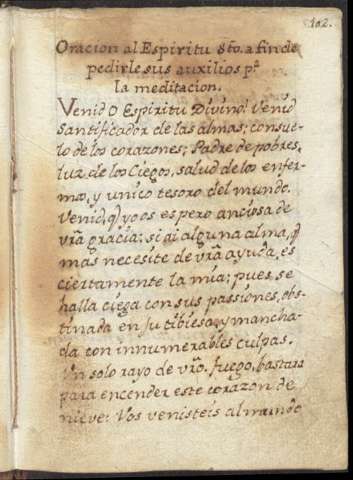 102.
Oracion al Espiritu Sto. a fin de
pedirle sus auxilios pª
la meditacion.
Venid O Espiritu Divino! Venid
Santificador de las almas; consue-
lo de los corazones; Padre de pobres,
luz de los Ciegos, salud de los enfer-
mos, y unico tesoro del mundo.
Venid, q̃ yo os espero anciosa de
vrã gracia: si ai alguna alma, q̃
mas necesite de vrã ayuda, es
ciertamente la mia; pues se
halla ciega con sus passiones, obs-
tinada en su tibiesa, y mancha-
da con innumerables culpas.
Un solo rayo de vrõ. fuego, bastara
para encender este corazon de
nieve: Vos venisteis al mundo